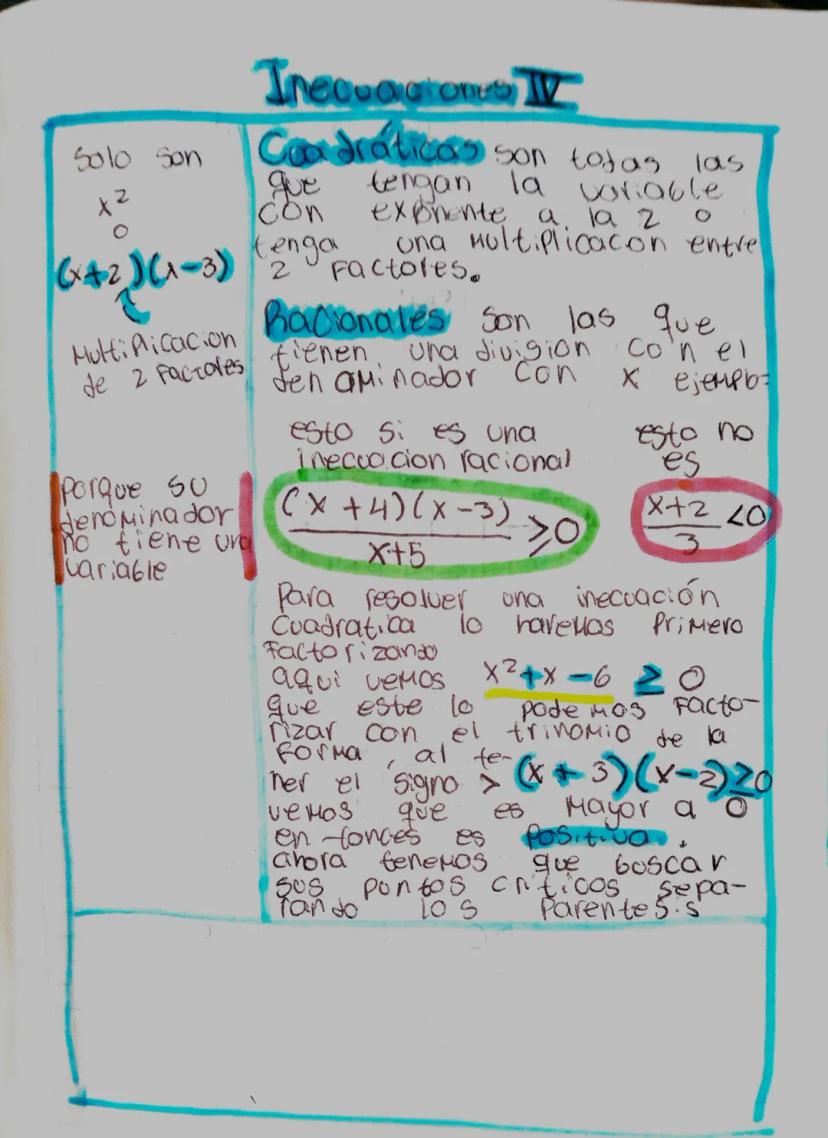 Inecuaciones IV
Solo son
x²
o
(x+2)(x-3)
Multiplicacion
de 2 Factores
Porque su
denominador
no tiene una
variable
Cuadráticas son todas las
que tengan la variable
con exponente a la 2 o
tenga una Multiplicacon entre
2 Factores.
Racionales son las que
tienen una division con el
denaminador con x ejemplo=
esto si es una
inecuacion racional
(x+4)(x-3)
x+5
≥0
esto no
es
x+2
3
<0
Para resolver una inecuación
Cuadratica lo haremos Primero
Factorizando
aqui vemos x²+x-6 ≥ 0
que este lo podemos Facto-
rizar con el trinomio de la
Forma, al te-
ner el signo > (x+3)(x-2)≥0
vemos que es Mayor a 0
entonces es Positiva.
ahora tenemos que buscar
sus puntos criticos sepa-
rando los Parentesis